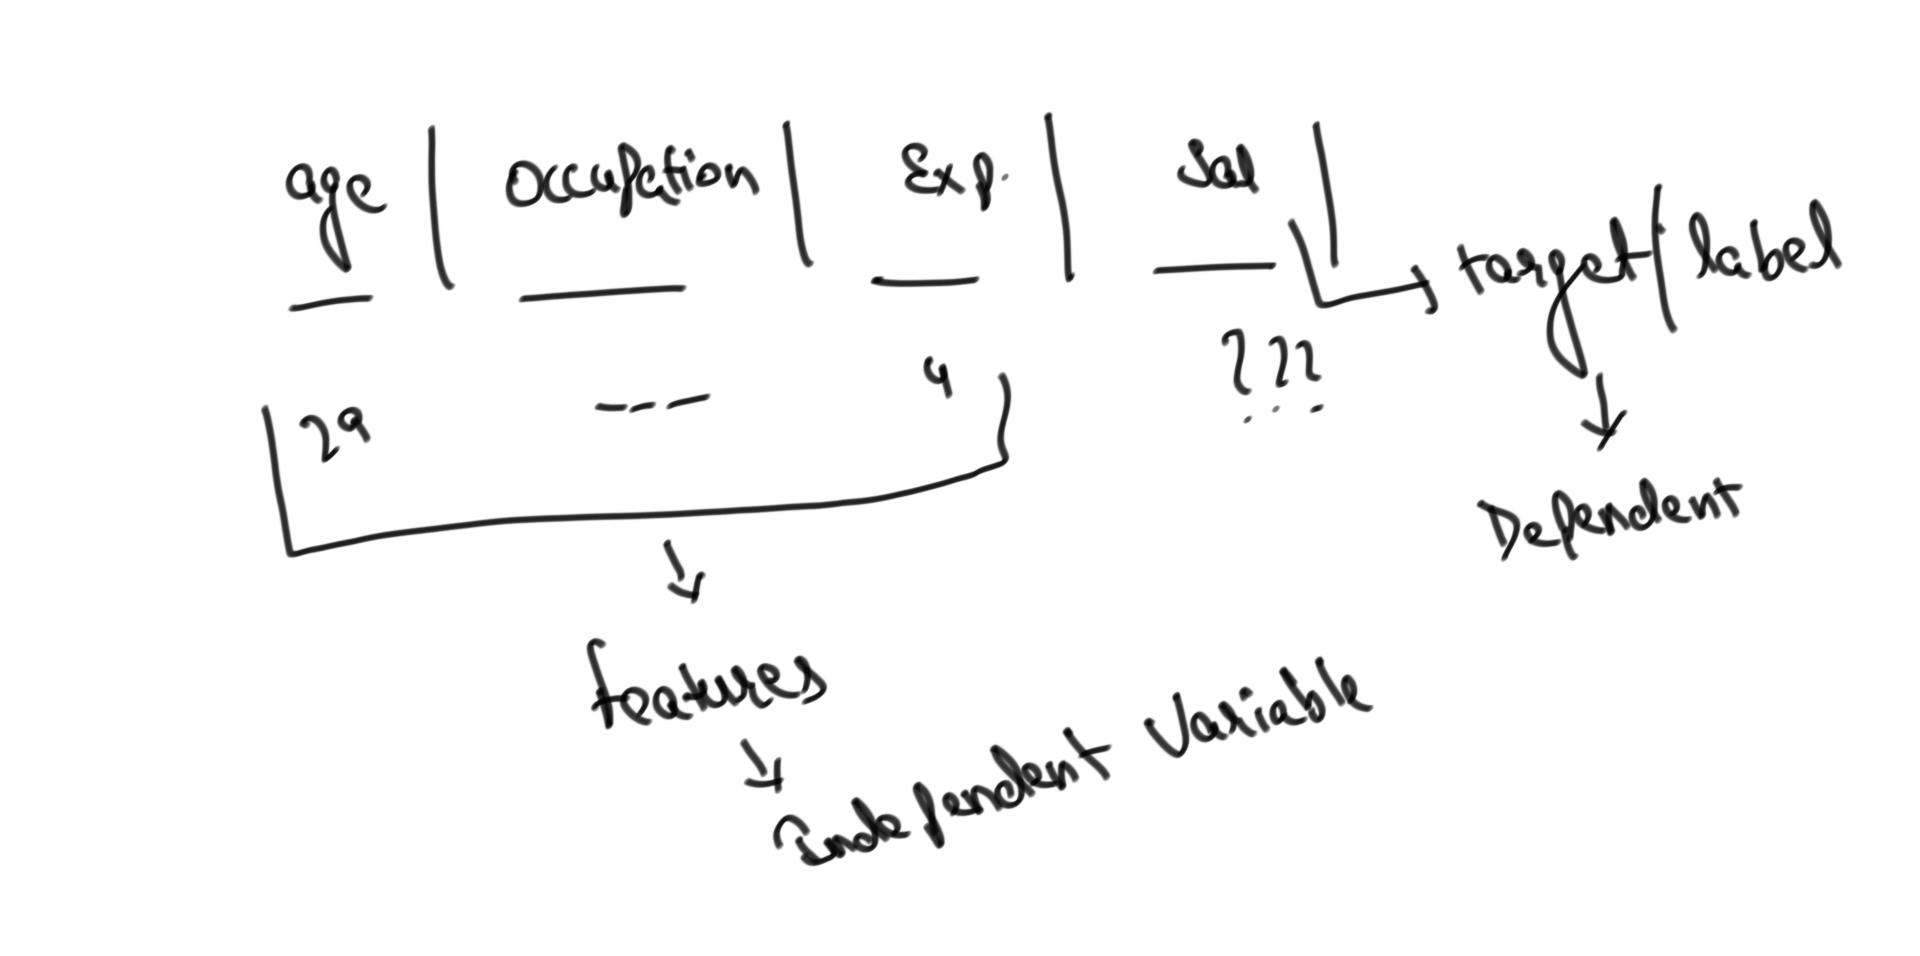 age | Occupation | Exp. | Sal |
target / label
29 --- 4 ???
Dependent
features
Independent Variable